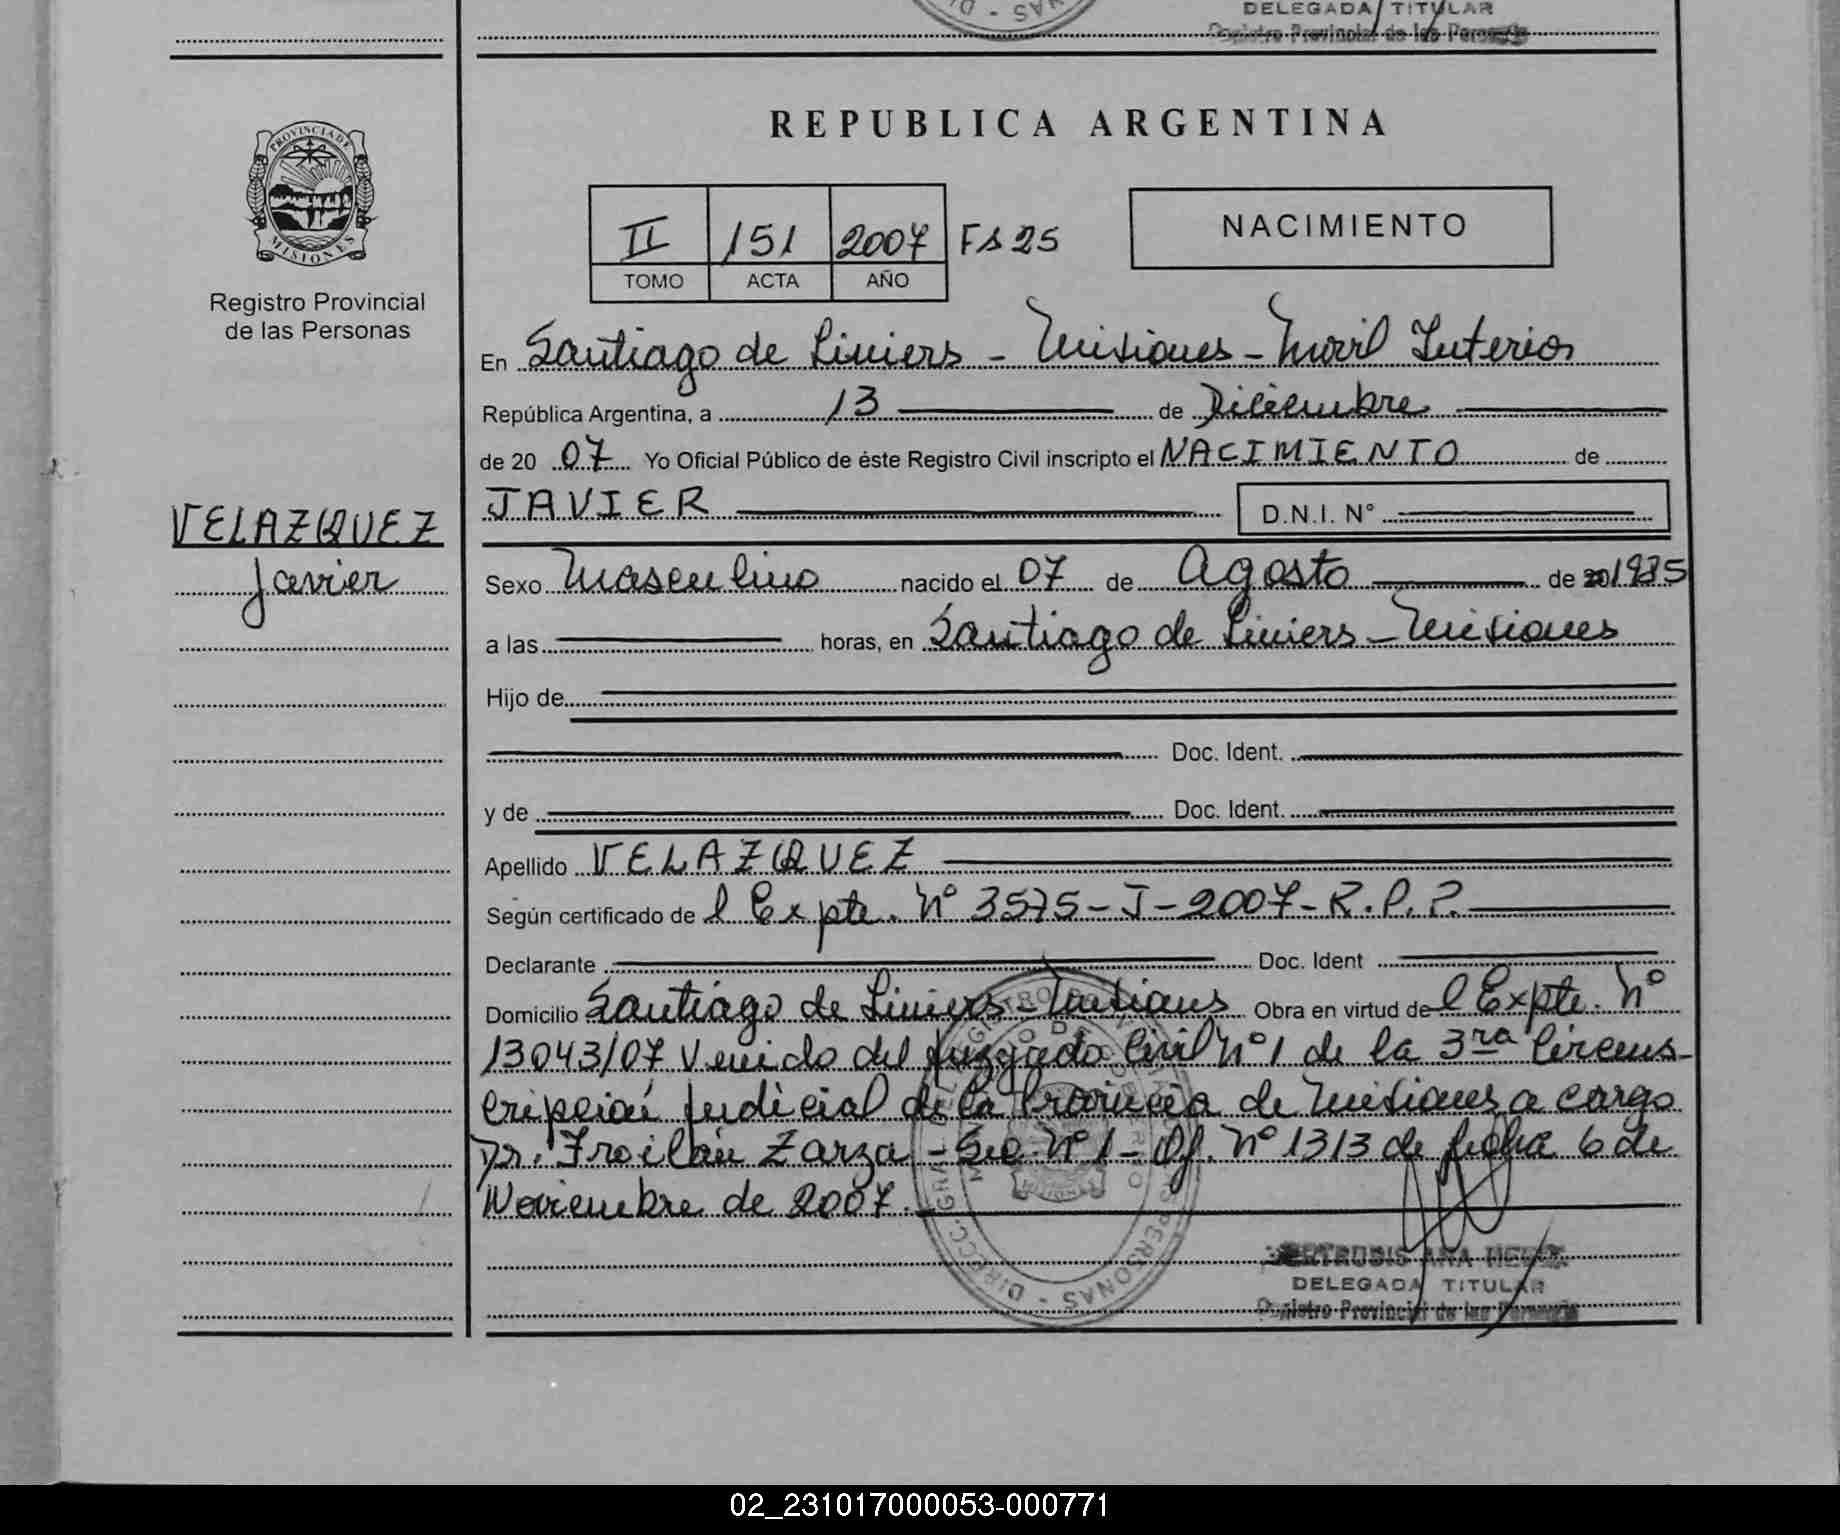 DELEGADA TITULAR
Registro Provincial de las Personas
REPUBLICA ARGENTINA
PROVINCIA DE MISIONES
Registro Provincial
de las Personas
II 151 2007 Fs 25
TOMO ACTA AÑO
NACIMIENTO
En Santiago de Liniers - Misiones - Movil Interior
República Argentina, a 13 de Diciembre
de 20 07 Yo Oficial Público de éste Registro Civil inscripto el NACIMIENTO de
JAVIER D.N.I. N°
VELAZQUEZ
Javier
Sexo Masculino nacido el 07 de Agosto de 20 1985
a las horas, en Santiago de Liniers - Misiones
Hijo de
Doc. Ident.
y de Doc. Ident.
Apellido VELAZQUEZ
Según certificado de l Expte. N° 3575-J-2007-R.P.P.
Declarante Doc. Ident
Domicilio Santiago de Liniers - Misiones Obra en virtud de l Expte. N°
13043/07 Venido del Juzgado Civil N° 1 de la 3ra Circuns-
cripción Judicial de la Provincia de Misiones a cargo
Dr. Froilán Zarza - Sec. N° 1 - Of. N° 1313 de fecha 6 de
Noviembre de 2007.
DELEGADA TITULAR
Registro Provincial de las Personas
02_231017000053-000771